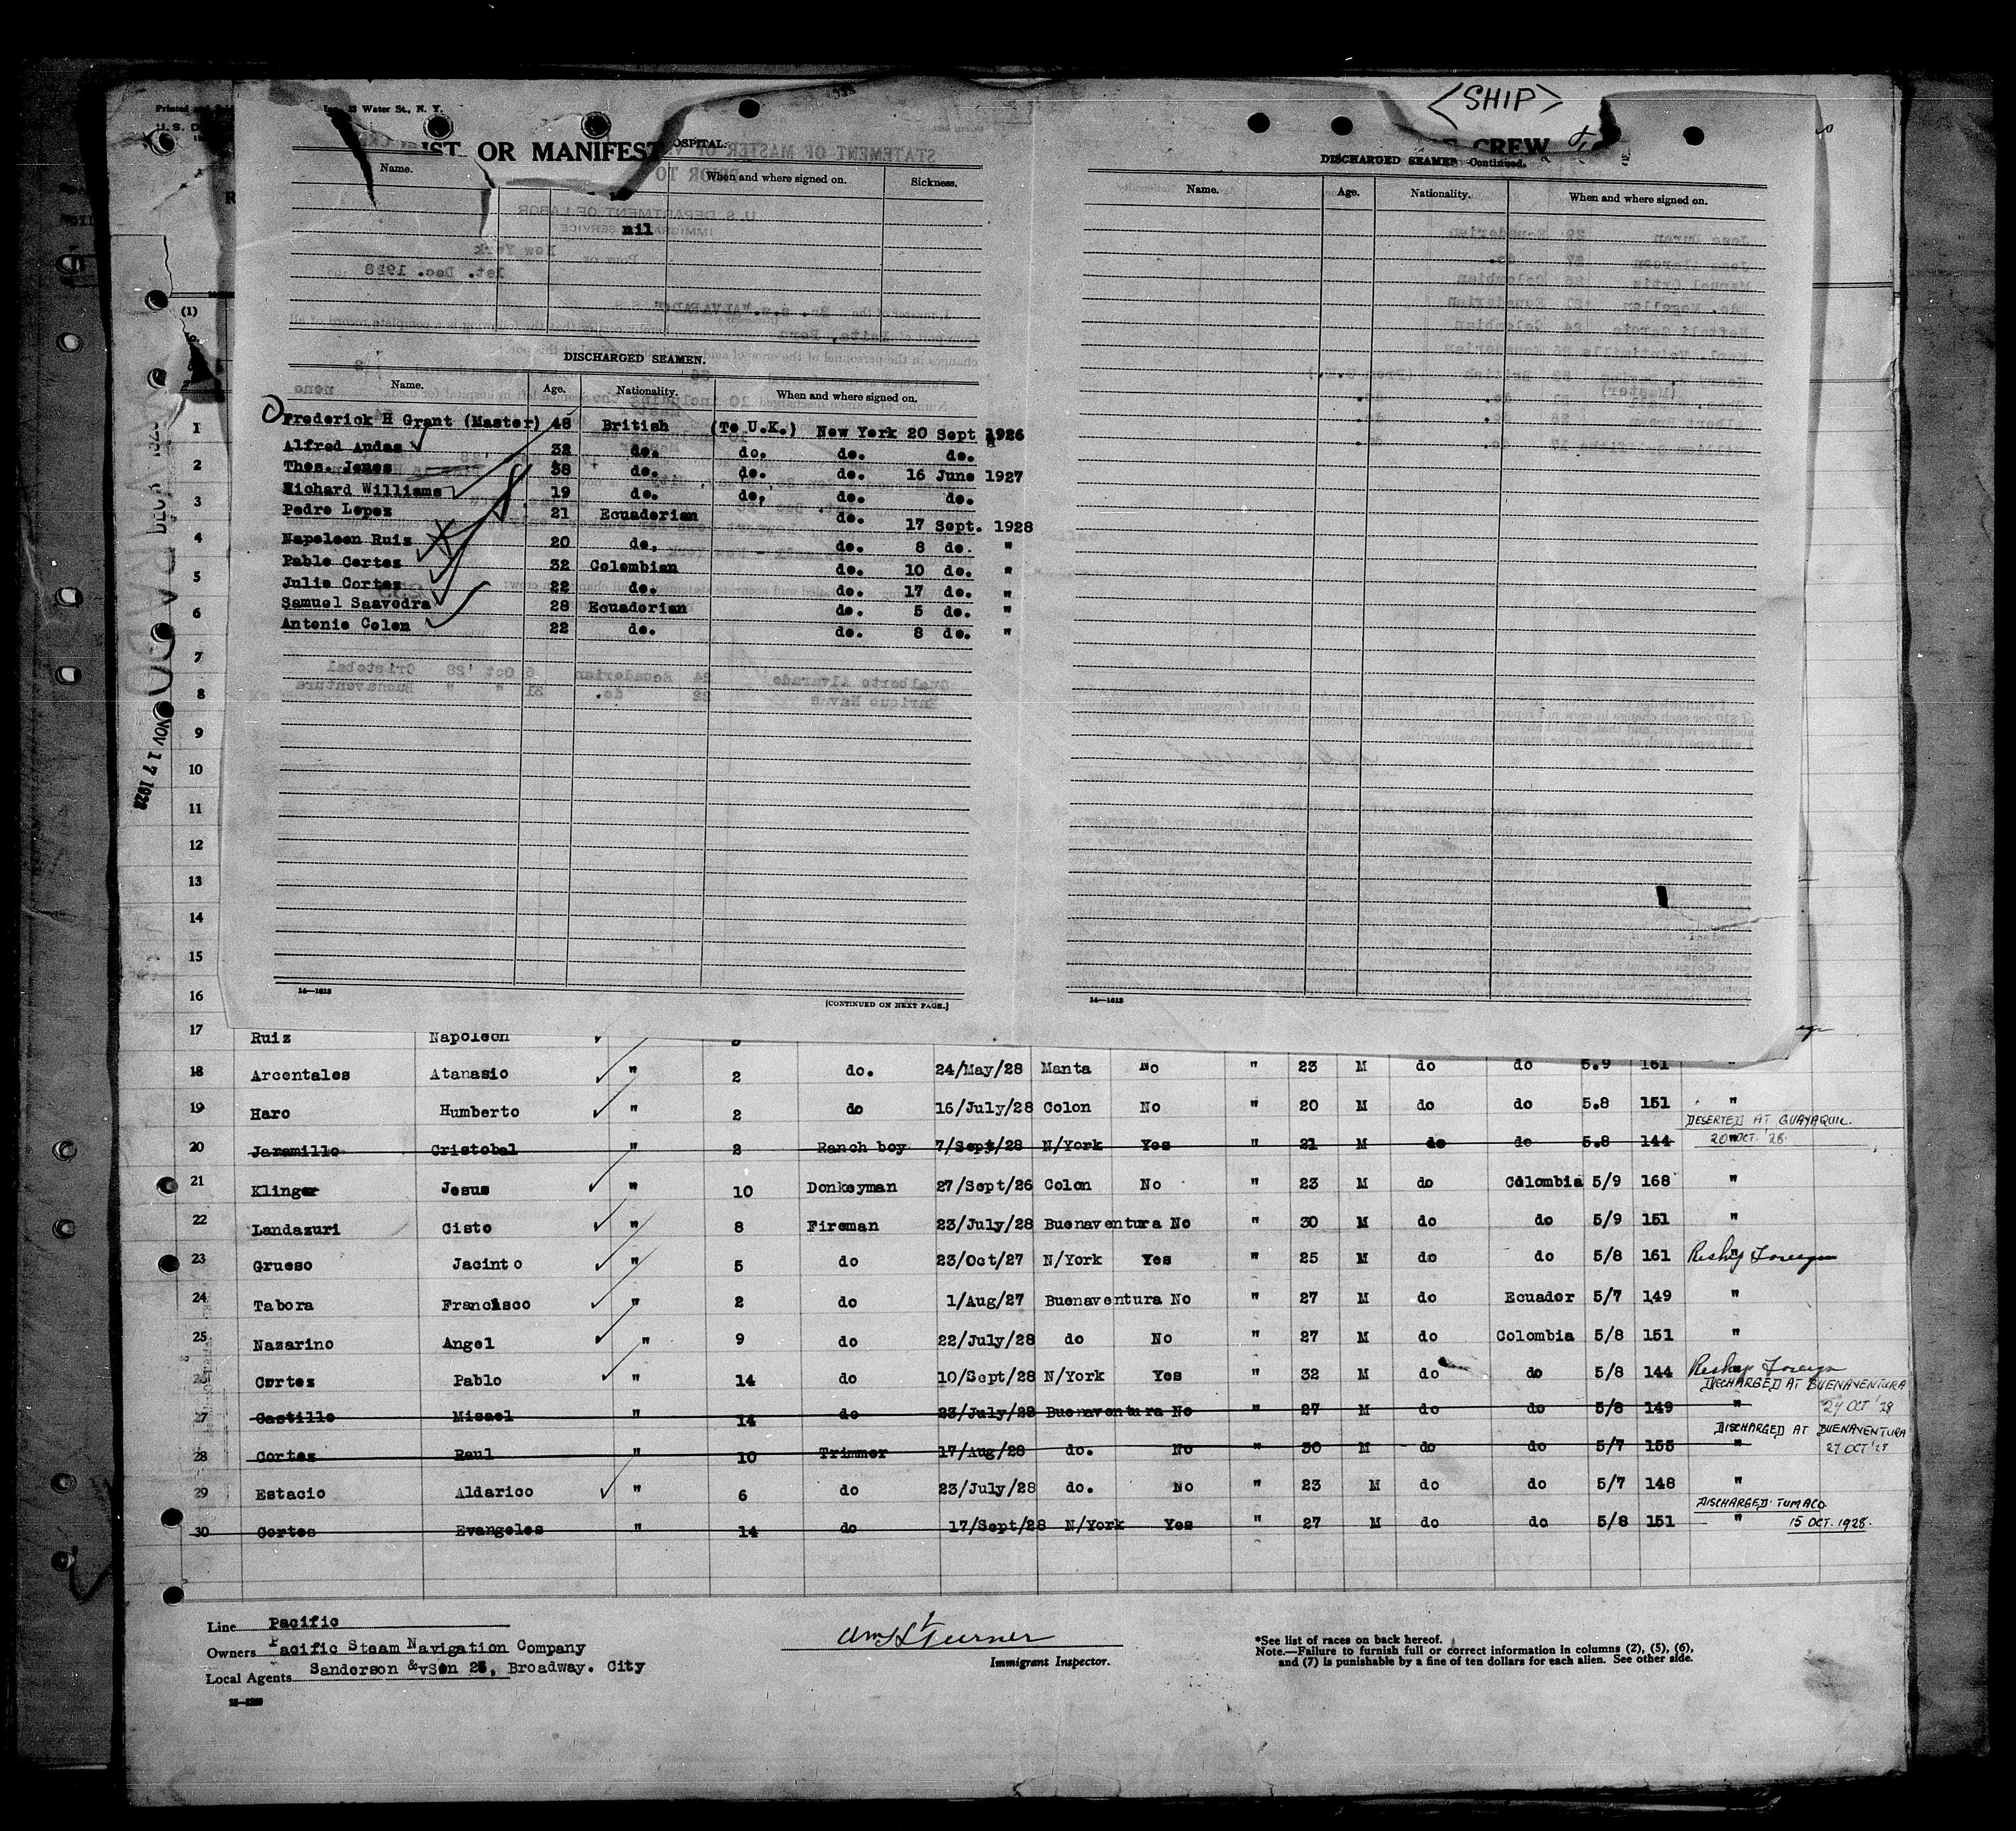 <SHIP>
Inc. 13 Water St., N. Y.
IST OR MANIFEST
CREW
OSPITAL.
Name. When and where signed on. Sickness.
nil
DISCHARGED SEAMEN.
Name. Age. Nationality. When and where signed on.
Frederick H Grant (Master) 48 British (To U.K.) New York 20 Sept 1926
Alfred Andas 32 do. do. do. do.
Thos. Jones 38 do. do. do. 16 June 1927
Richard Williams 19 do. do, do. do.
Pedro Lopez 21 Ecuadorian do. 17 Sept. 1928
Napoleon Ruiz 20 do, do. 8 do. "
Pablo Cortes 32 Colombian do. 10 do. "
Julio Cortez 22 do. do. 17 do. "
Samuel Saavedra 28 Ecuadorian do. 5 do. "
Antonio Colon 22 do. do. 8 do. "
14—1613
[CONTINUED ON NEXT PAGE.]
DISCHARGED SEAMEN—Continued.
Name. Age. Nationality. When and where signed on.
14—1613
(1)
1
2
3
4
5
6
7
8
9
10
11
12
13
14
15
16
NOV 17 1928
17 Ruiz Napoleon
18 Arcentales Atanasio " 2 do. 24/May/28 Manta No " 23 M do do 5.9 161 "
19 Haro Humberto " 2 do 16/July/28 Colon No " 20 M do do 5.8 151 "
DESERTED AT GUAYAQUIL.
20 OCT. '28.
20 Jaramillo Cristobal " 2 Ranch boy 7/Sept/28 N/York Yes " 21 M do do 5.8 144 "
21 Klinger Jesus " 10 Donkeyman 27/Sept/26 Colon No " 23 M do Colombia 5/9 168 "
22 Landazuri Cisto " 8 Fireman 23/July/28 Buenaventura No " 30 M do do 5/9 151 "
23 Grueso Jacinto " 5 do 23/Oct/27 N/York Yes " 25 M do do 5/8 161 " Reshp Foreign
24 Tabora Francisco " 2 do 1/Aug/27 Buenaventura No " 27 M do Ecuador 5/7 149 "
25 Nazarino Angel " 9 do 22/July/28 do No " 27 M do Colombia 5/8 151 "
26 Cortez Pablo " 14 do 10/Sept/28 N/York Yes " 32 M do do 5/8 144 Reshp Foreign
DISCHARGED AT BUENAVENTURA
27 Castillo Misael " 14 do 23/July/28 Buenaventura No " 27 M do do 5/8 149 " 29 OCT '28
DISCHARGED AT BUENAVENTURA
28 Cortez Raul " 10 Trimmer 17/Aug/28 do. No " 30 M do do 5/7 155 "
29 Estacio Aldarico " 6 do 23/July/28 do. No " 23 M do do 5/7 148 "
DISCHARGED TUMACO
30 Cortes Evangeles " 14 do 17/Sept/28 N/York Yes " 27 M do do 5/8 151 " 15 OCT. 1928.
Line Pacific
Owners Pacific Steam Navigation Company
Local Agents Sanderson & Son 26, Broadway. City
Immigrant Inspector.
*See list of races on back hereof.
Note.—Failure to furnish full or correct information in columns (2), (5), (6),
and (7) is punishable by a fine of ten dollars for each alien. See other side.